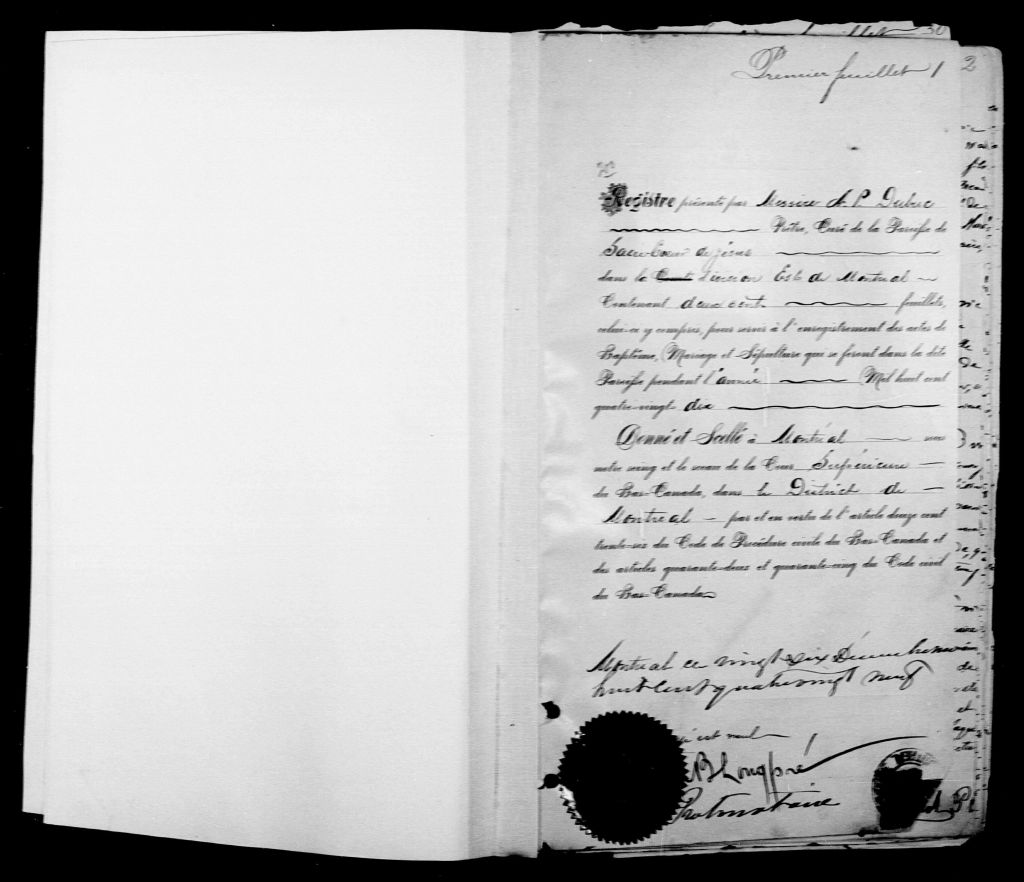 Premier feuillet 1
2
Registre présenté par Messire A. P. Dubuc
Prêtre, Curé de la Paroisse de
Sacré-Coeur de Jésus
dans la division Est de Montréal
Contenant deux cent feuillets,
celui-ci y compris, pour servir à l'enregistrement des actes de
Baptême, Mariage et Sépulture qui se feront dans la dite
Paroisse pendant l'année Mil huit cent
quatre-vingt dix
Donné et Scellé à Montréal sous
notre seing et le sceau de la Cour Supérieure
du Bas-Canada, dans le District de
Montreal par et en vertu de l'article douze cent
trente-six du Code de Procédure civile du Bas-Canada et
des articles quarante-deux et quarante-cinq du Code civil
du Bas-Canada
Montreal ce vingt six Décembre mil
huit cent quatre vingt neuf
est nul
Longpré
Protonotaire